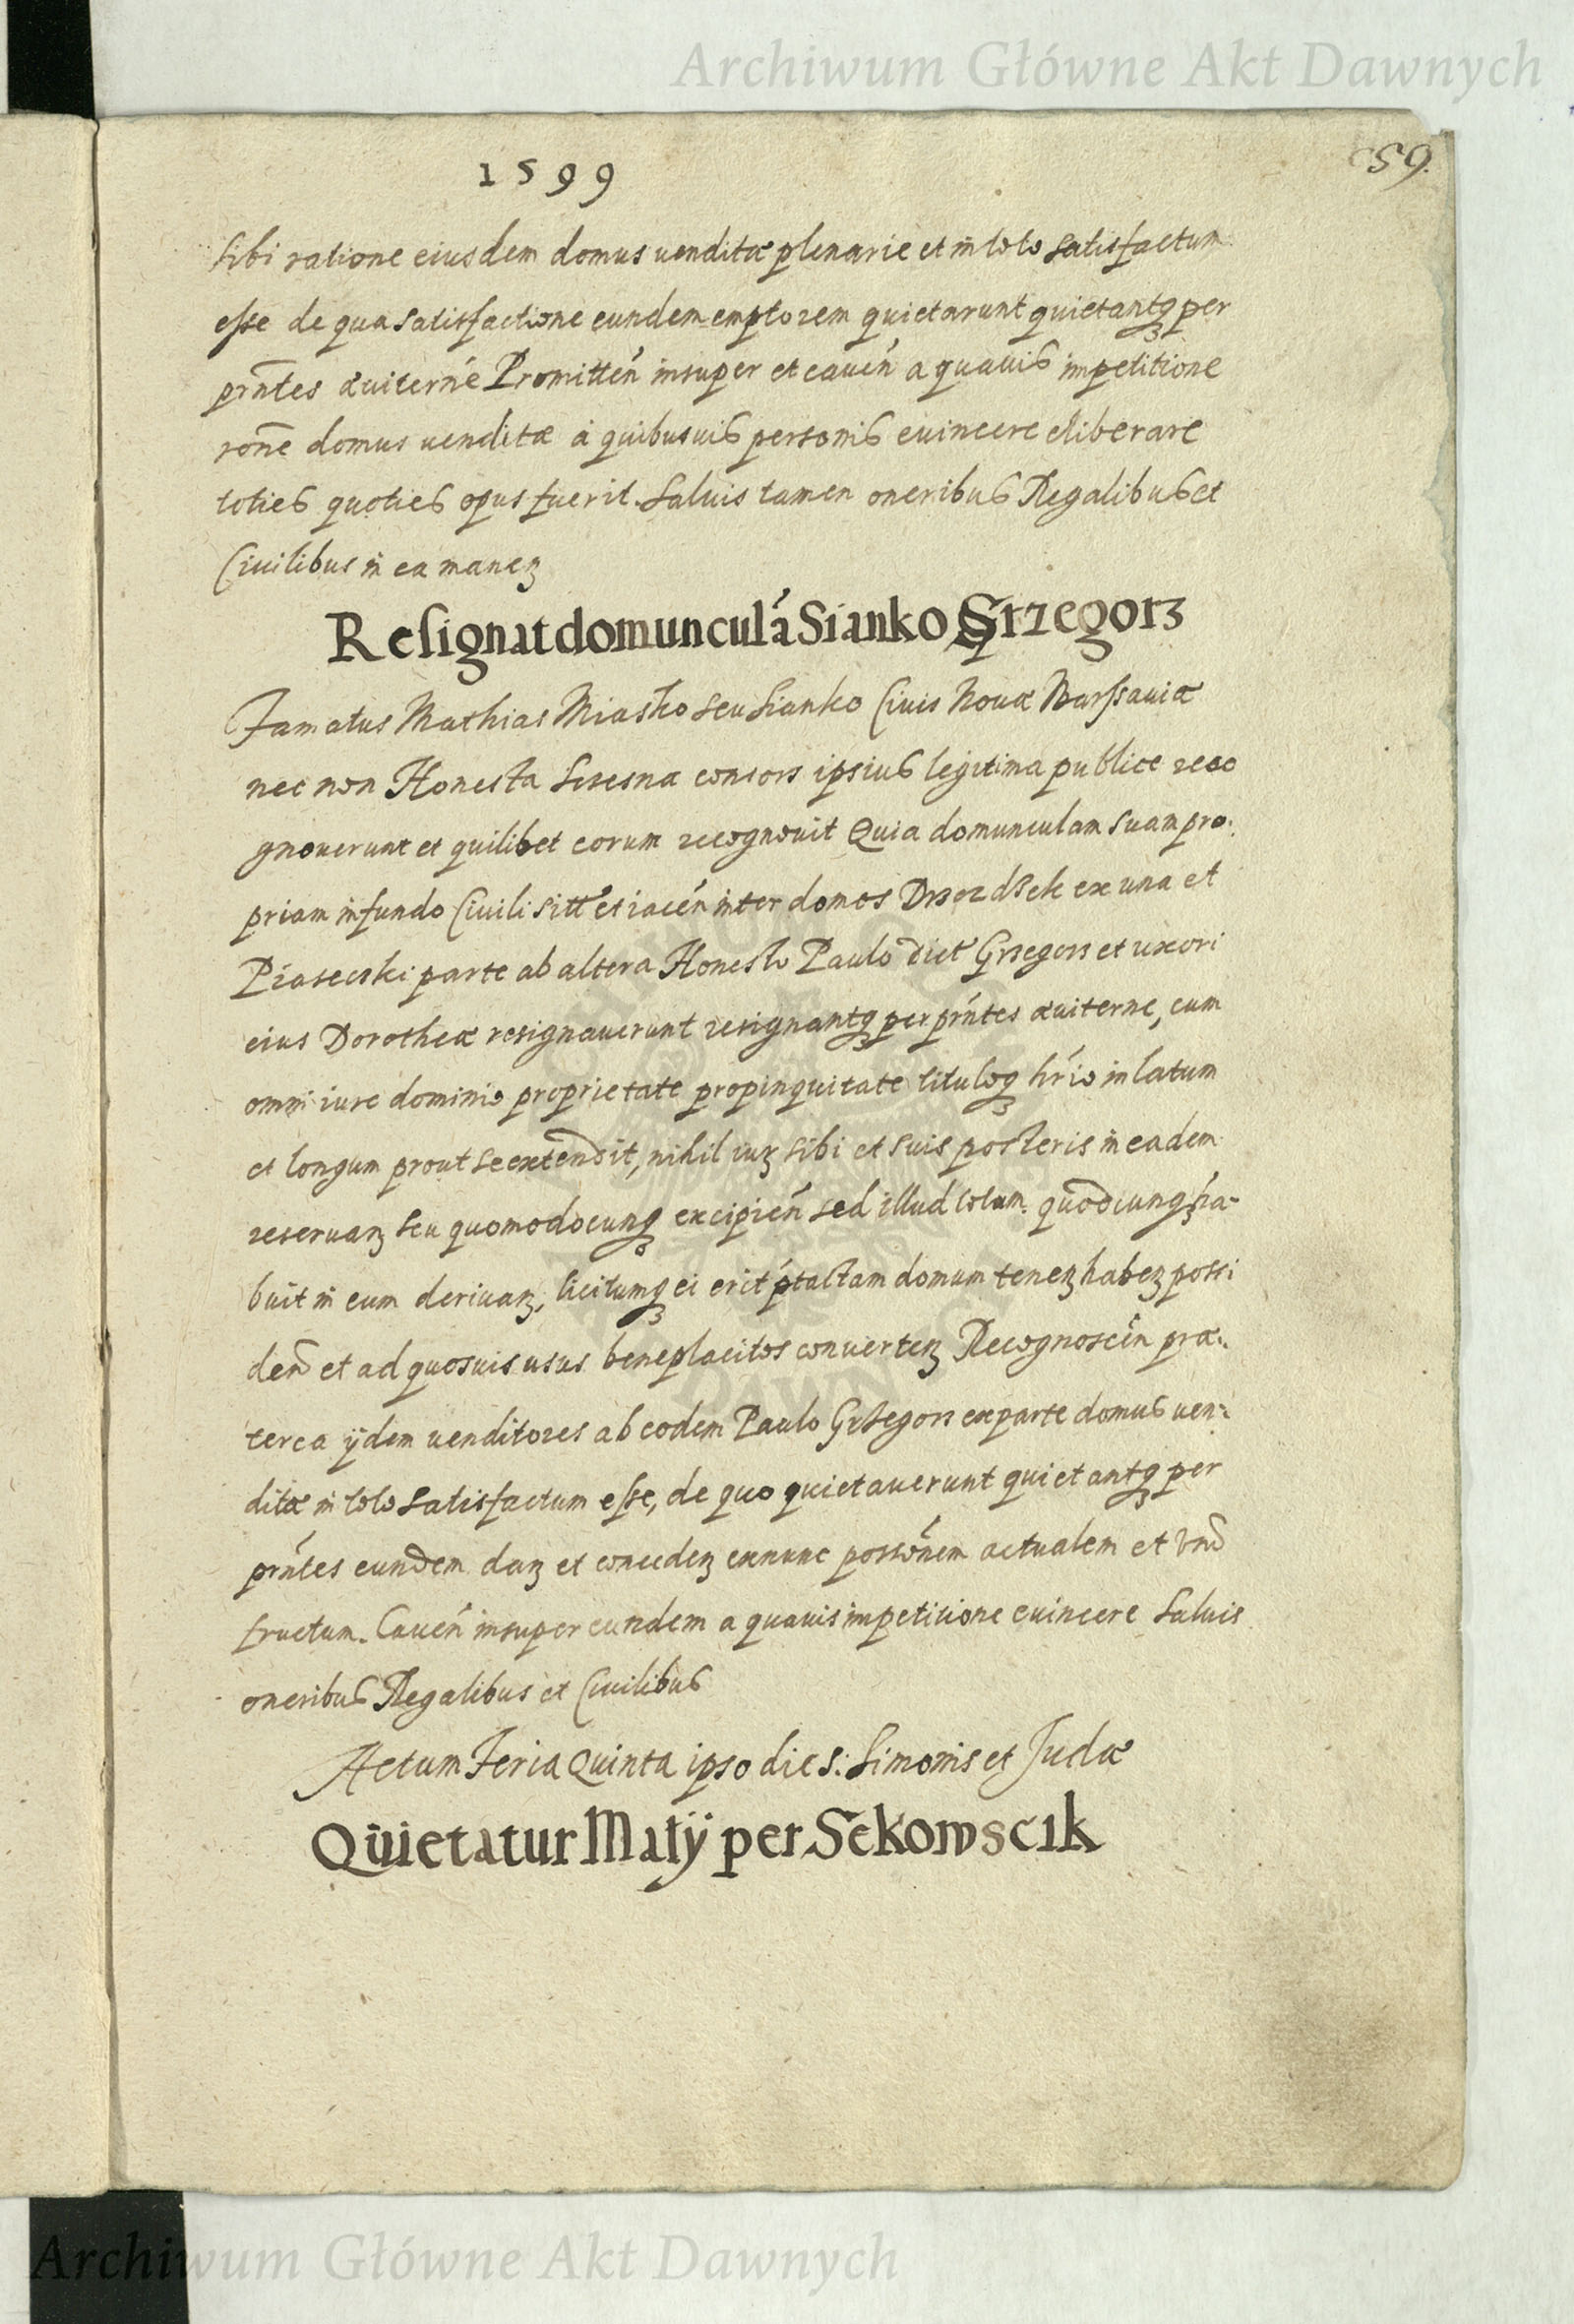 Archiwum Główne Akt Dawnych
1599
59.
sibi ratione eiusdem domus venditæ plenarie et in toto satisfactum
esse de qua satisfactione eundem emptorem quietarunt quietantq3 per
prñtes æuiterne Promitteñ insuper et caueñ a quauis impetitione
roñe domus uenditæ a quibusuis personis euincere eliberare
toties quoties opus fuerit. Saluis tamen oneribus Regalibus et
Ciuilibus in ea maneȝ
Resignat domunculá Sianko Grzegorz
Famatus Mathias Miasko seu Sianko Ciuis Nouæ Warssauiæ
nec non Honesta consors ipsius legitima publice reco
gnouerunt et quilibet eorum recognouit Quia domunculam suam pro:
priam in fundo Ciuili sitt et iaceń inter domos ex una et
Piasecski parte ab altera Honesto Paulo dict Grzegorz et uxori
eius Dorotheæ resignauerunt resignantq3 per prńtes æuiterne, cum
omni iure dominio proprietate propinquitate tituloq3 hŕio in latum
et longum prout se extendit, nihil iuȝ sibi et suis posteris in eadem
reseruaȝ seu quomodocunq3 excipieñ sed illud totum quodcunq3 ha-
buit in eum deriuaȝ, licitumq3 ei erit ptactam domum teneȝ habeȝ possi
deñ et ad quosuis usus beneplacitos conuerteȝ Recognosceñ præ:
terea ijdem uenditores ab eodem Paulo Grzegorz ex parte domus uen:
ditæ in toto satisfactum esse, de quo quietauerunt quietantq3 per
prńtes eundem daȝ et concedeȝ exnunc possoñem actualem et
fructum. Caueñ insuper eundem a quauis impetitione euincere Saluis
oneribus Regalibus et Ciuilibus
Actum Feria Quinta ipso die S: Simonis et Judæ
Quietatur Matÿ per Sekowscik
Archiwum Główne Akt Dawnych